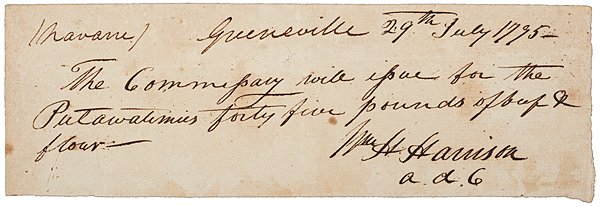 (Navarre) Greenville 29th July 1795-
The Commissary will issue for the
Putawatimies forty five pounds of beef &
flour-
Wm H Harrison
a. d. C